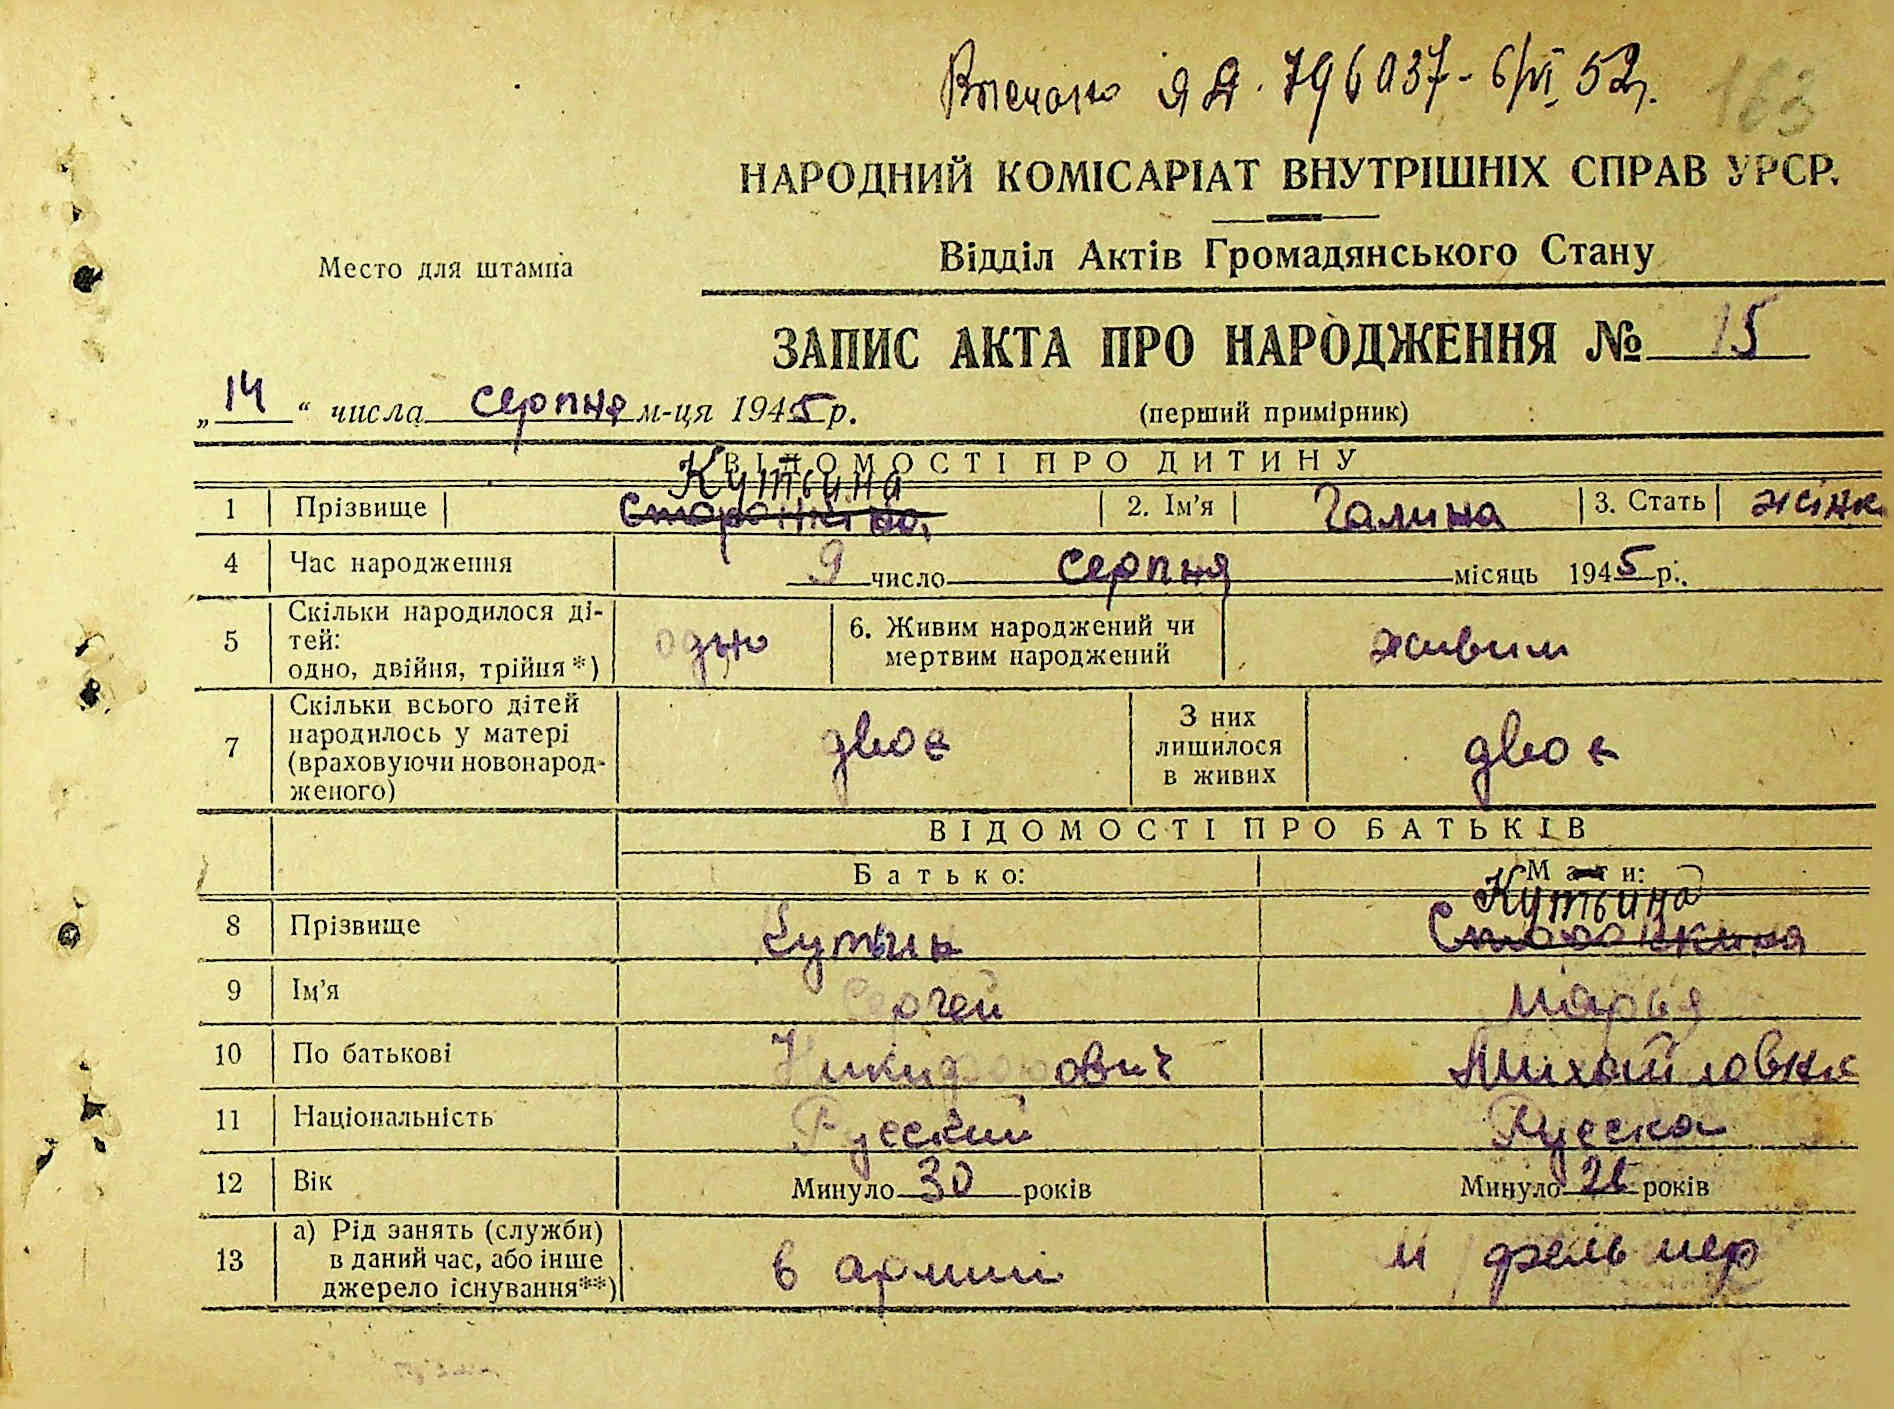 ЯЯ. 796037 - 6/VI 52г.
163
НАРОДНИЙ КОМІСАРІАТ ВНУТРІШНІХ СПРАВ УРСР.
Место для штампа
Відділ Актів Громадянського Стану
ЗАПИС АКТА ПРО НАРОДЖЕННЯ № 15
„14“ числа серпня м-ця 1945 р. (перший примірник)
ВІДОМОСТІ ПРО ДИТИНУ
Кутьина
1 Прізвище 2. Ім'я Галина 3. Стать жінк
4 Час народження 9 число серпня місяць 1945 р.
5 Скільки народилося ді-
тей:
одно, двійня, трійня *) одно 6. Живим народжений чи
мертвим народжений живим
7 Скільки всього дітей
народилось у матері
(враховуючи новонарод-
женого) двоє З них
лишилося
в живих двоє
ВІДОМОСТІ ПРО БАТЬКІВ
Батько: Мати:
Кутьина
8 Прізвище Кутьин
9 Ім'я Сергей Марья
10 По батькові Никифорович Михайловна
11 Національність Русский Руска
12 Вік Минуло 30 років Минуло 26 років
13 а) Рід занять (служби)
в даний час, або інше
джерело існування**) в армии фельшер